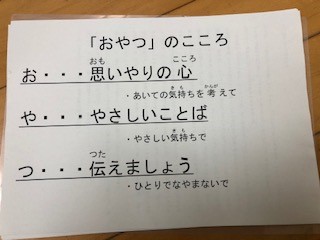 「おやつ」のこころ
お・・・思いやりの心
・あいての気持ちを考えて
や・・・やさしいことば
・やさしい気持ちで
つ・・・伝えましょう
・ひとりでなやまないで